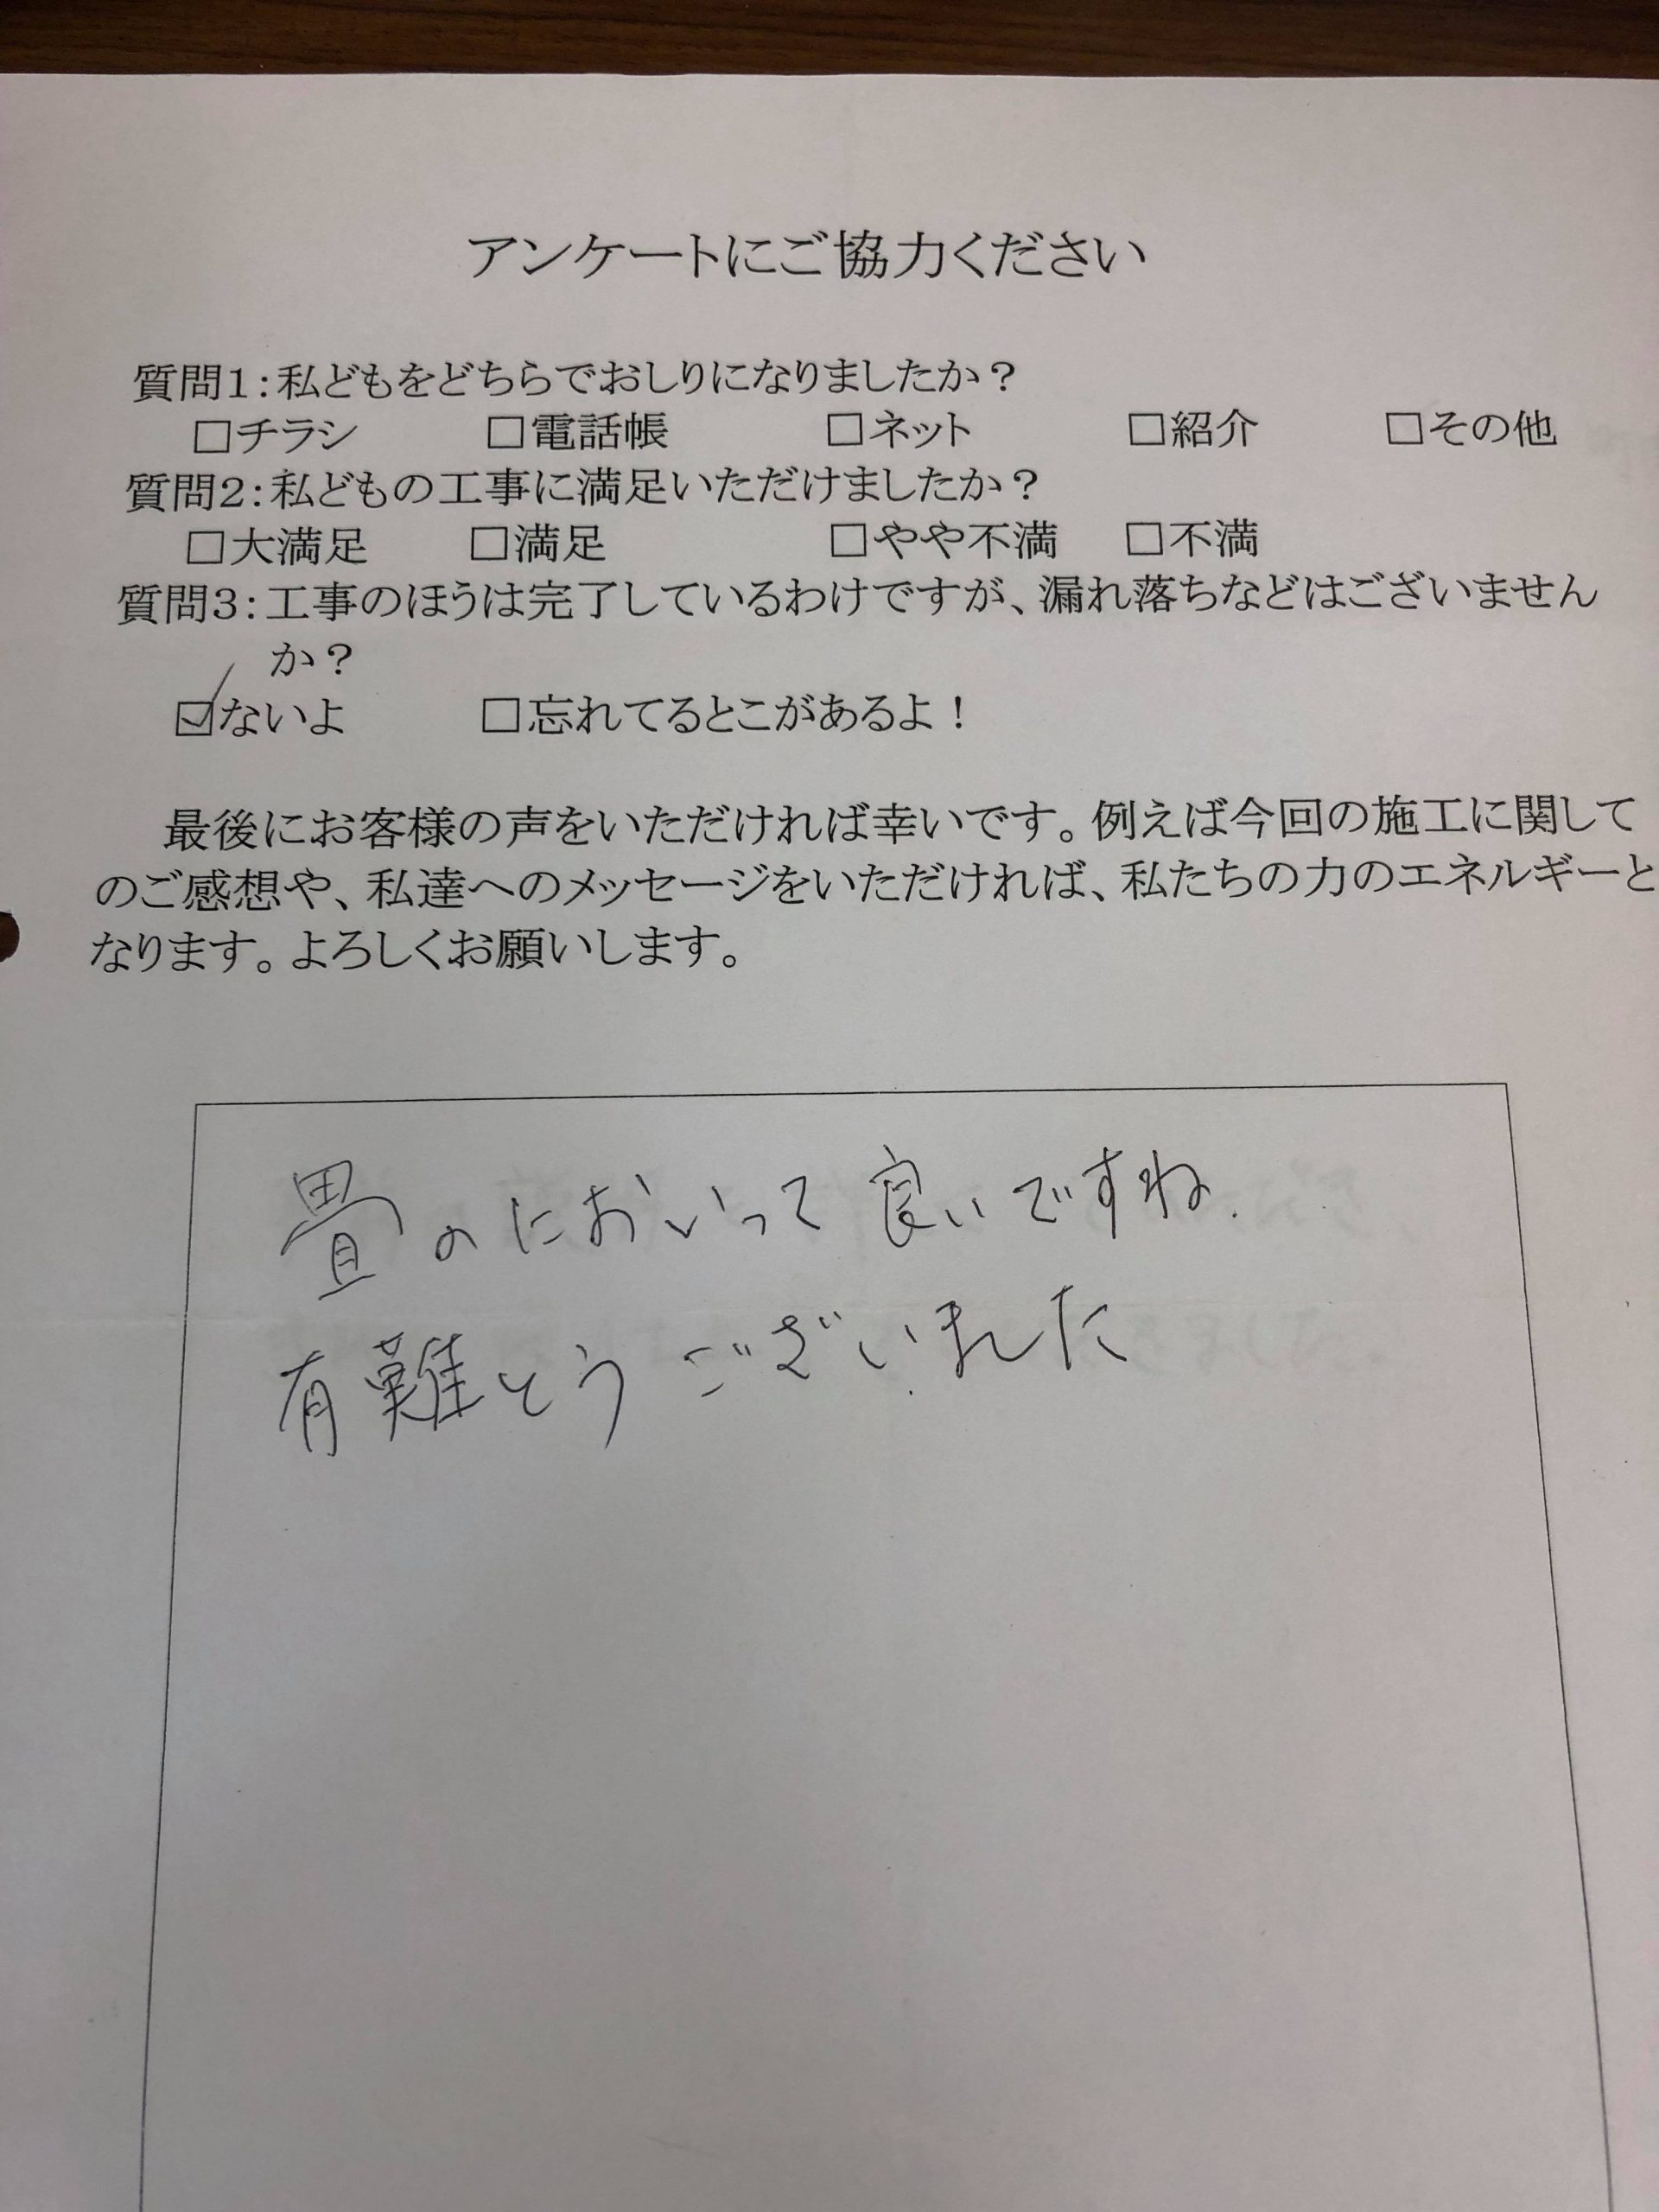 アンケートにご協力ください
質問1:私どもをどちらでおしりになりましたか?
□チラシ □電話帳 □ネット □紹介 □その他
質問2:私どもの工事に満足いただけましたか?
□大満足 □満足 □やや不満 □不満
質問3:工事のほうは完了しているわけですが、漏れ落ちなどはございません
か?
☑ないよ □忘れてるとこがあるよ!
最後にお客様の声をいただければ幸いです。例えば今回の施工に関して
のご感想や、私達へのメッセージをいただければ、私たちの力のエネルギーと
なります。よろしくお願いします。
畳のにおいって良いですね.
有難とうございました